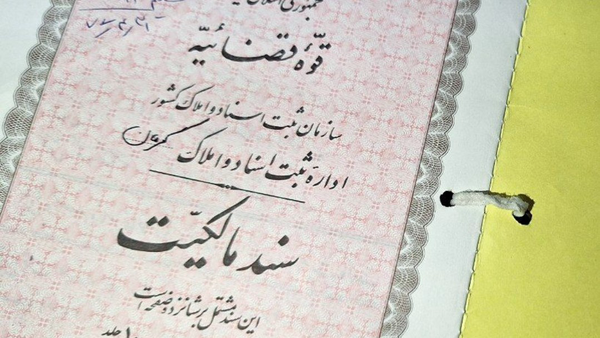 جمهوری اسلامی
قوّهٔ قضائیّه
سازمان ثبت اسناد و املاک کشور
ادارهٔ ثبت اسناد و املاک
سند مالکیّت
این سند مشتمل بر شانزده صفحه است
جلد